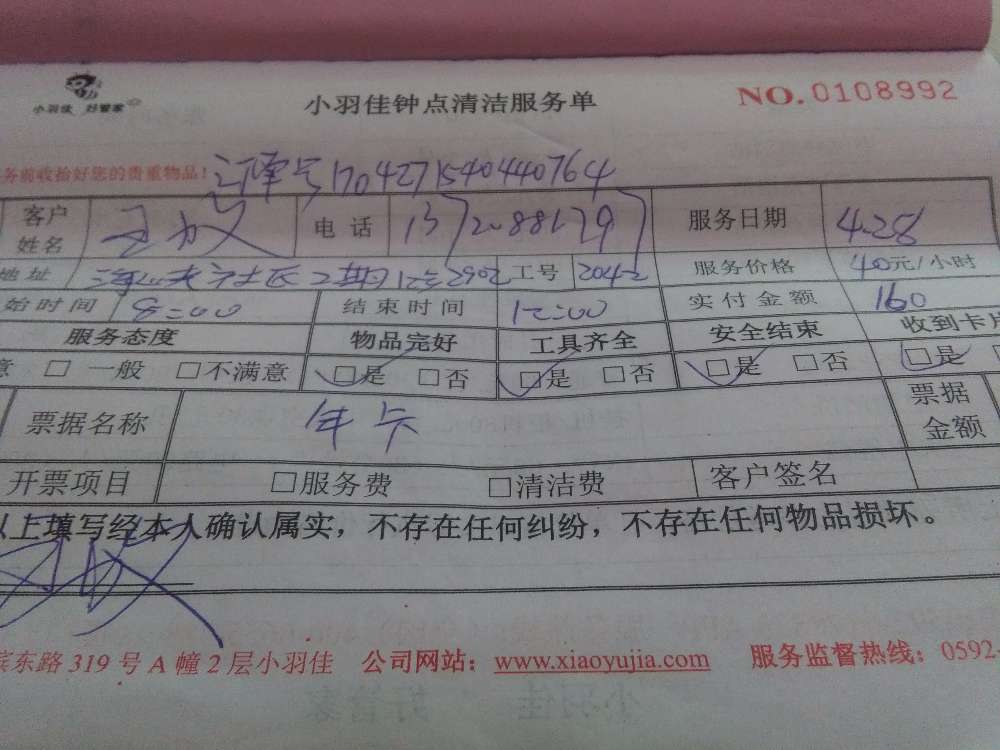 小羽佳 好管家
小羽佳钟点清洁服务单 NO.0108992
务前收拾好您的贵重物品! 订单号1704271540440764
客户姓名 电话 服务日期 4.28
地址 2期12号2902 工号 2042 服务价格 40元/小时
始时间 8:00 结束时间 12:00 实付金额 160
服务态度 物品完好 工具齐全 安全结束 收到卡片
意 □ 一般 □不满意 □是 □否 □是 □否 □是 □否 □是
票据名称 年卡 票据金额
开票项目 □服务费 □清洁费 客户签名
以上填写经本人确认属实，不存在任何纠纷，不存在任何物品损坏。
滨东路 319 号 A 幢 2 层小羽佳 公司网站：www.xiaoyujia.com 服务监督热线：0592-